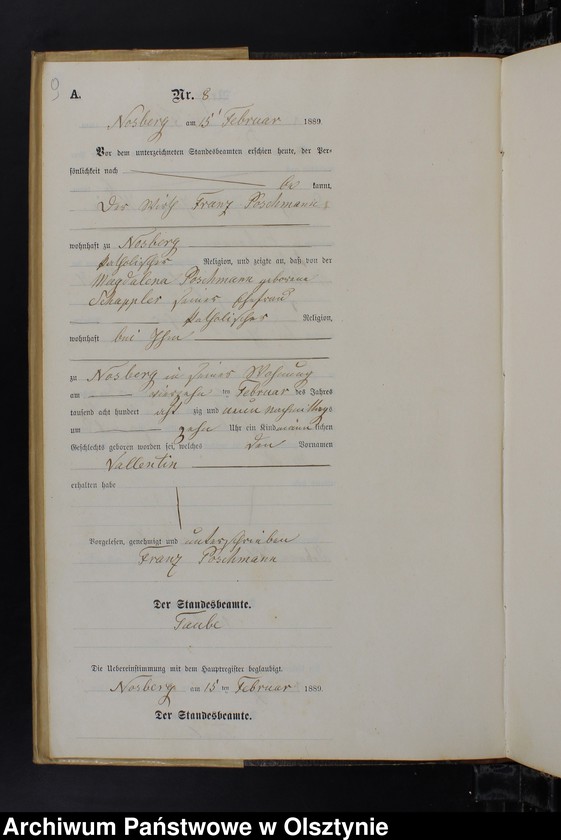 9
A. Nr. 8
Nosberg am 15t Februar 1889
Vor dem unterzeichneten Standesbeamten erschien heute, der Per-
sönlichkeit nach
be kannt,
Der Wirth Franz Poschmann
wohnhaft zu Nosberg
katholischer Religion, und zeigte an, daß von der
Magdalena Poschmann geborene
Schappler seiner Ehefrau
katholischer Religion,
wohnhaft bei Ihm
zu Nosberg in seiner Wohnung
am vierzehn ten Februar des Jahres
tausend acht hundert acht zig und neun nachmittags
um zehn Uhr ein Kind männlichen
Geschlechts geboren worden sei, welches den Vornamen
Vallentin
erhalten habe
Vorgelesen, genehmigt und unterschrieben
Franz Poschmann
Der Standesbeamte.
Taube
Die Uebereinstimmung mit dem Hauptregister beglaubigt.
Nosberg am 15 ten Februar 1889
Der Standesbeamte.
Archiwum Państwowe w Olsztynie